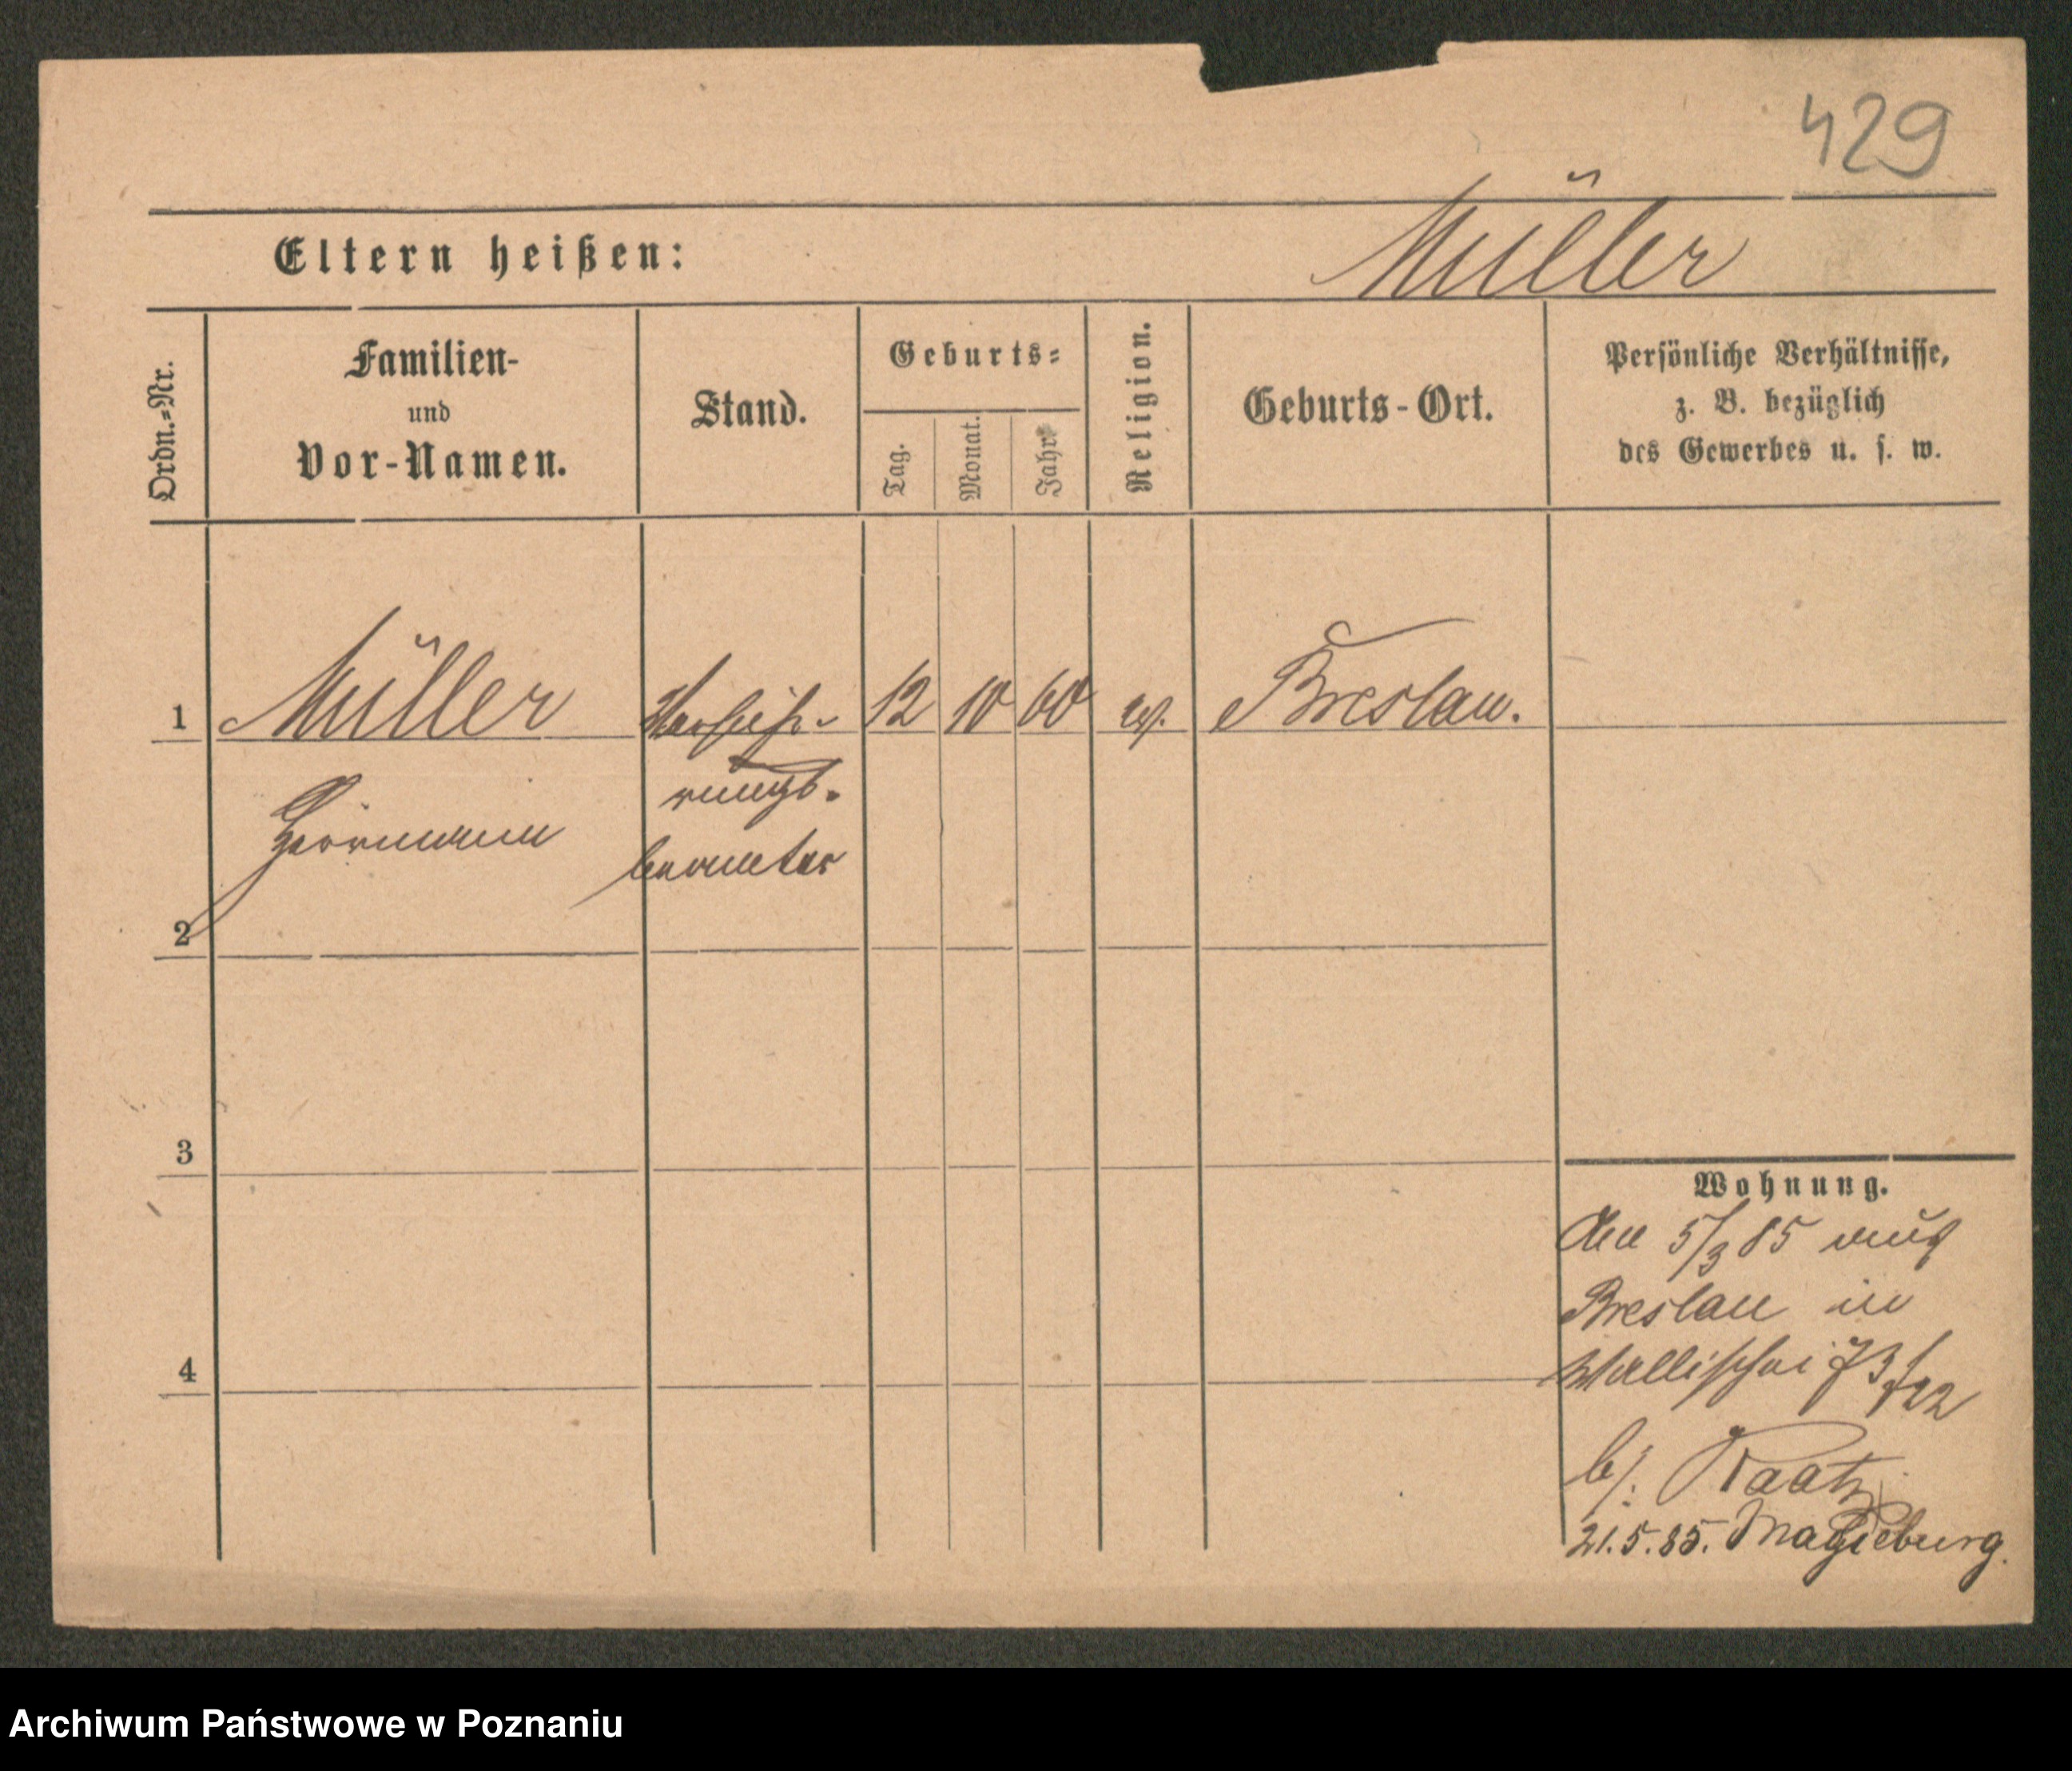 429
Eltern heißen: Müller
Ordn.=Nr.
Familien-
und
Vor-Namen.
Stand.
Geburts=
Tag.
Monat.
Jahr.
Religion.
Geburts-Ort.
Persönliche Verhältnisse,
z. B. bezüglich
des Gewerbes u. s. w.
1 Müller Versiche- 12 10 60 ev. Breslau.
Herrmann
rungs-
beamter
2
3
4
Wohnung.
Den 5/3 85 aus
Breslau in
Wallischei 73/
b/: Raatz
21.5.85. Magdeburg.
Archiwum Państwowe w Poznaniu